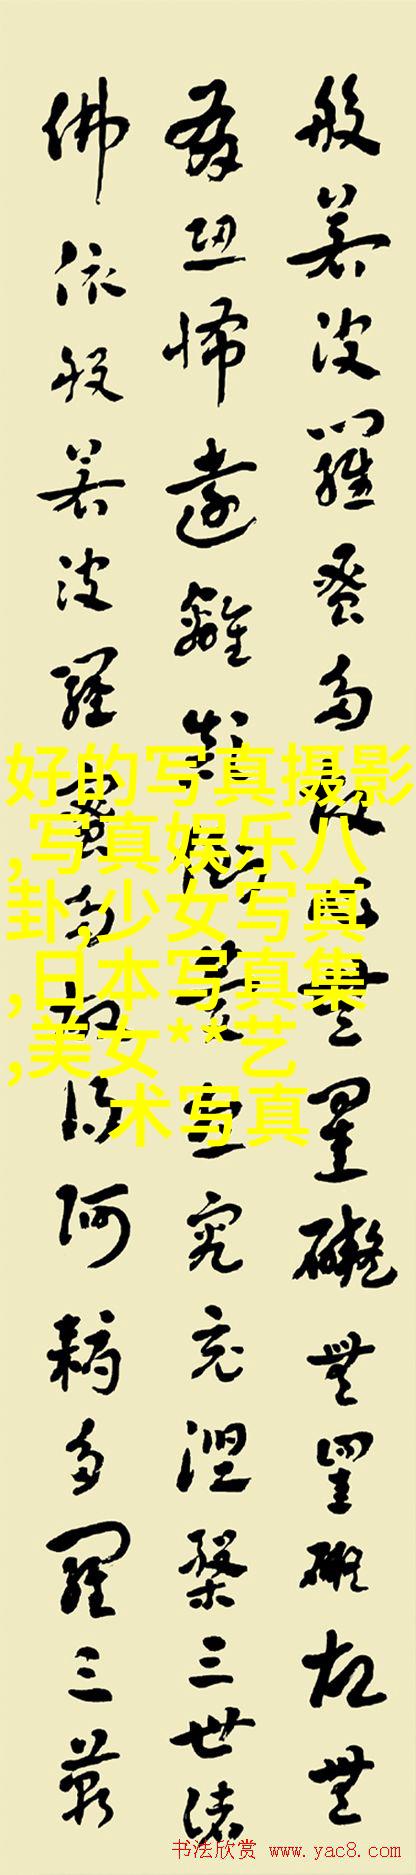 般若波羅蜜多故心無罣礙無罣礙故無
有恐怖遠離顛倒夢想究竟涅槃三世諸
佛依般若波羅蜜多故得阿耨多羅三藐
好的写真摄影
,写真娱乐八
卦,少女写真
,日本写真集
,美女**艺
术写真
书法欣赏 www.yac8.com